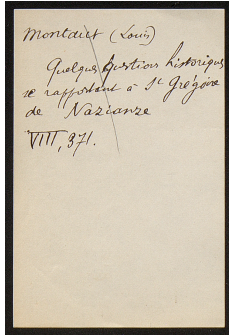 Montaut (Louis)
Quelques questions historiques
se rapportant à St Grégoire
de Nazianze
VIII, 371.